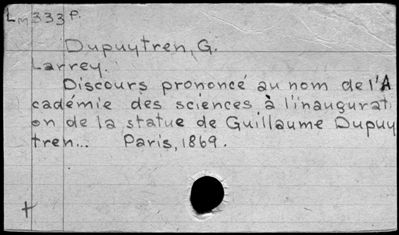 Lm333P.
Dupuytren, G.
Larrey.
Discours prononcé au nom de l'A
cadémie des sciences à l'inaugurat
on de la statue de Guillaume Dupuy
tren... Paris, 1869.